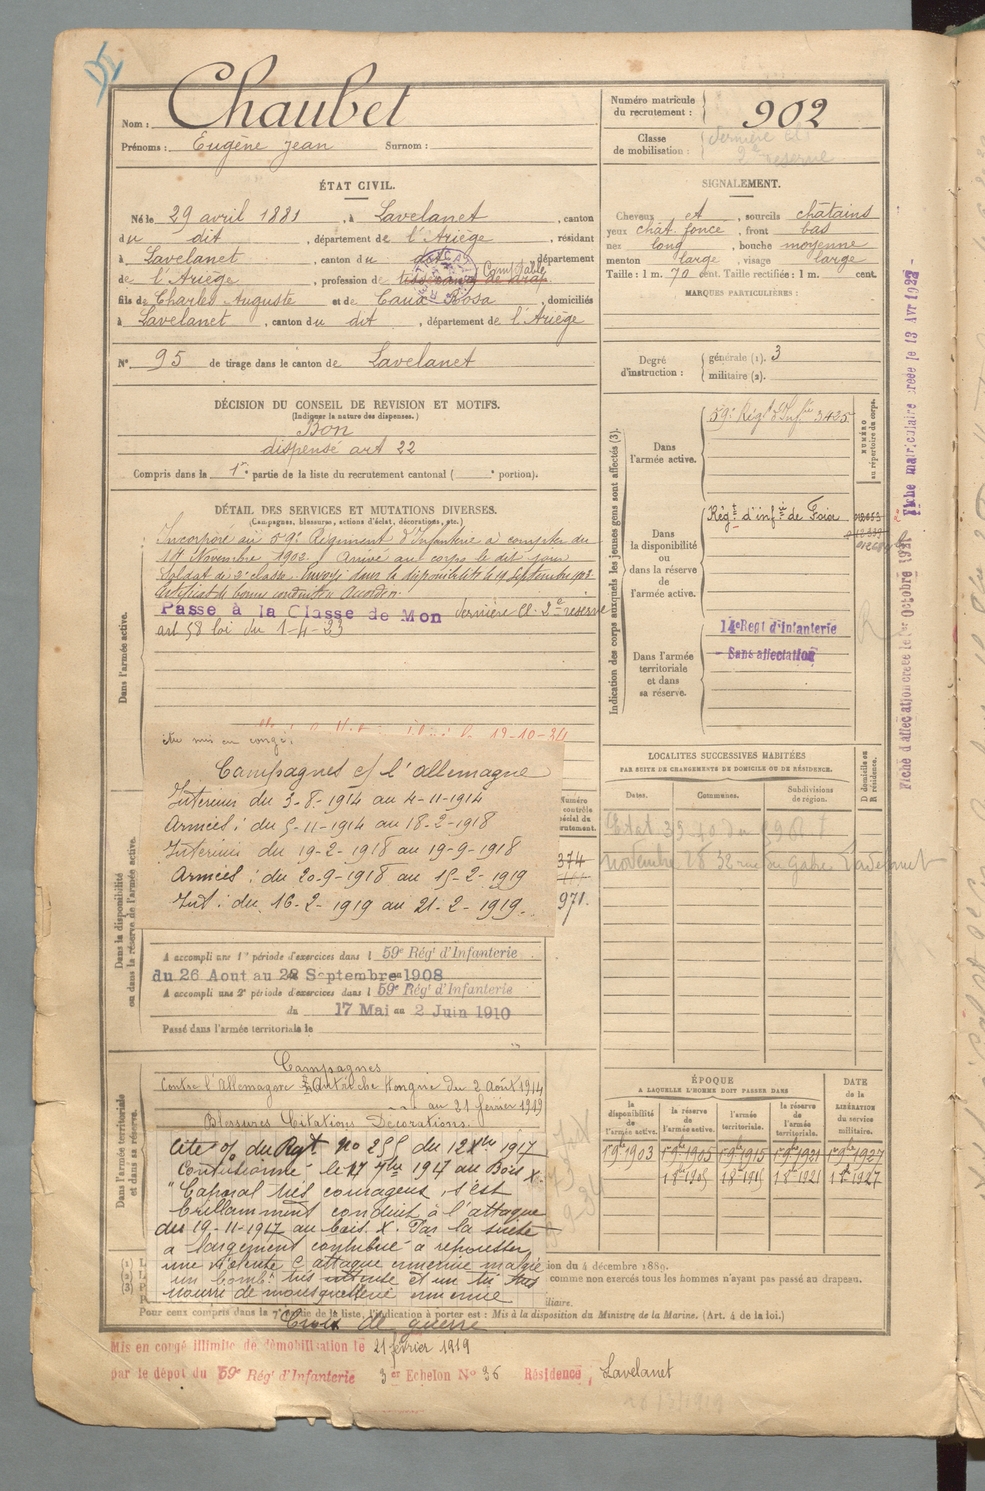 Nom : Chaubet
Prénoms : Eugène Jean Surnom :
Numéro matricule du recrutement : 902
Classe de mobilisation : dernière cl 2e reserve
ÉTAT CIVIL.
Né le 29 avril 1881, à Lavelanet, canton
du dit, département de l'Ariège, résidant
à Lavelanet, canton du dit, département
de l'Ariège, profession de tisserand de drap Comptable
fils de Charles Auguste et de Rosa, domiciliés
à Lavelanet, canton du dit, département de l'Ariège
N° 95 de tirage dans le canton de Lavelanet
SIGNALEMENT.
Cheveux et, sourcils châtains
yeux chât. foncé, front bas
nez long, bouche moyenne
menton large, visage large
Taille : 1 m. 70 cent. Taille rectifiée : 1 m. cent.
MARQUES PARTICULIÈRES :
Degré d'instruction : générale (1). 3
militaire (2).
DÉCISION DU CONSEIL DE REVISION ET MOTIFS.
(Indiquer la nature des dispenses.)
Bon
dispensé art 22
Compris dans la 1re partie de la liste du recrutement cantonal ( portion).
DÉTAIL DES SERVICES ET MUTATIONS DIVERSES.
(Campagnes, blessures, actions d'éclat, décorations, etc.)
Dans l'armée active.
Incorporé au 59e Régiment d'Infanterie à compter du
Novembre 1902. Arrivé au corps le dit jour
Soldat de 2e classe. Envoyé dans la disponibilité le 19 Septembre 1903
Certificat de bonne conduite Accordé.
Passe à la Classe de Mon dernière Cl. 2e reserve
art 58 loi du 1-4-23
19-10-34
mis en congé
Campagnes c/ l'allemagne
Intérieur du 3-8-1914 au 4-11-1914
Armées : du 5-11-1914 au 18-2-1918
Intérieur du 19-2-1918 au 19-9-1918
Armées : du 20-9-1918 au 15-2-1919
Int : du 16-2-1919 au 21-2-1919.
Dans la disponibilité
ou dans la réserve de l'armée active.
A accompli une 1re période d'exercices dans l 59e Régt d'Infanterie
du 26 Aout au 22 Septembre 1908
A accompli une 2e période d'exercices dans l 59e Régt d'Infanterie
du 17 Mai au 2 Juin 1910
Passé dans l'armée territoriale le
Dans l'armée territoriale
et dans sa réserve.
Campagnes
Contre l'Allemagne Autriche Hongrie du 2 Août 1914
au 21 février 1919
Blessures Citations Décorations.
Cité o/ du Rgt No 255 du 12 Xbre 1917
au Bois X.
"Caporal très courageux, s'est
brillamment conduit à l'attaque
du 19-11-1917 au bois X. Par la suite
a largement contribué à repousser
une contre attaque ennemie malgré
un bombt très et un tir
nourri de mousqueterie ennemie
Croix de guerre
Indication des corps auxquels les jeunes gens sont affectés (3).
NUMÉRO au répertoire du corps.
Dans l'armée active.
59e Régt d'Infie 3425
Dans la disponibilité ou dans la réserve de l'armée active.
Régt d'infie de Foix
Dans l'armée territoriale et dans sa réserve.
14e Regt d'Infanterie
Sans affectation
Fiche d'affectation créée le 1er Octobre 1921
Fiche matriculaire créée le 13 Avr 1922
LOCALITES SUCCESSIVES HABITÉES
PAR SUITE DE CHANGEMENTS DE DOMICILE OU DE RÉSIDENCE.
Dates. Communes. Subdivisions de région. D domicile ou R résidence.
novembre 28 32 rue
374
971.
ÉPOQUE
A LAQUELLE L'HOMME DOIT PASSER DANS
la disponibilité de l'armée active. la réserve de l'armée active. l'armée territoriale. la réserve de l'armée territoriale.
DATE de la LIBÉRATION du service militaire.
1 9bre 1903 1 9bre 1905 1 9bre 1915 1 9bre 1921 1 9bre 1927
1 8bre 1905 1 8bre 1915 1 8bre 1921 1 8bre 1927
ion du 4 décembre 1889.
comme non exercés tous les hommes n'ayant pas passé au drapeau.
iliaire.
Pour ceux compris dans la 7e partie de la liste, l'indication à porter est : Mis à la disposition du Ministre de la Marine. (Art. 4 de la loi.)
Mis en congé illimité de démobilisation le 21 février 1919
par le dépot du 59e Rég' d'Infanterie 3er Echelon No 36 Résidence, Lavelanet